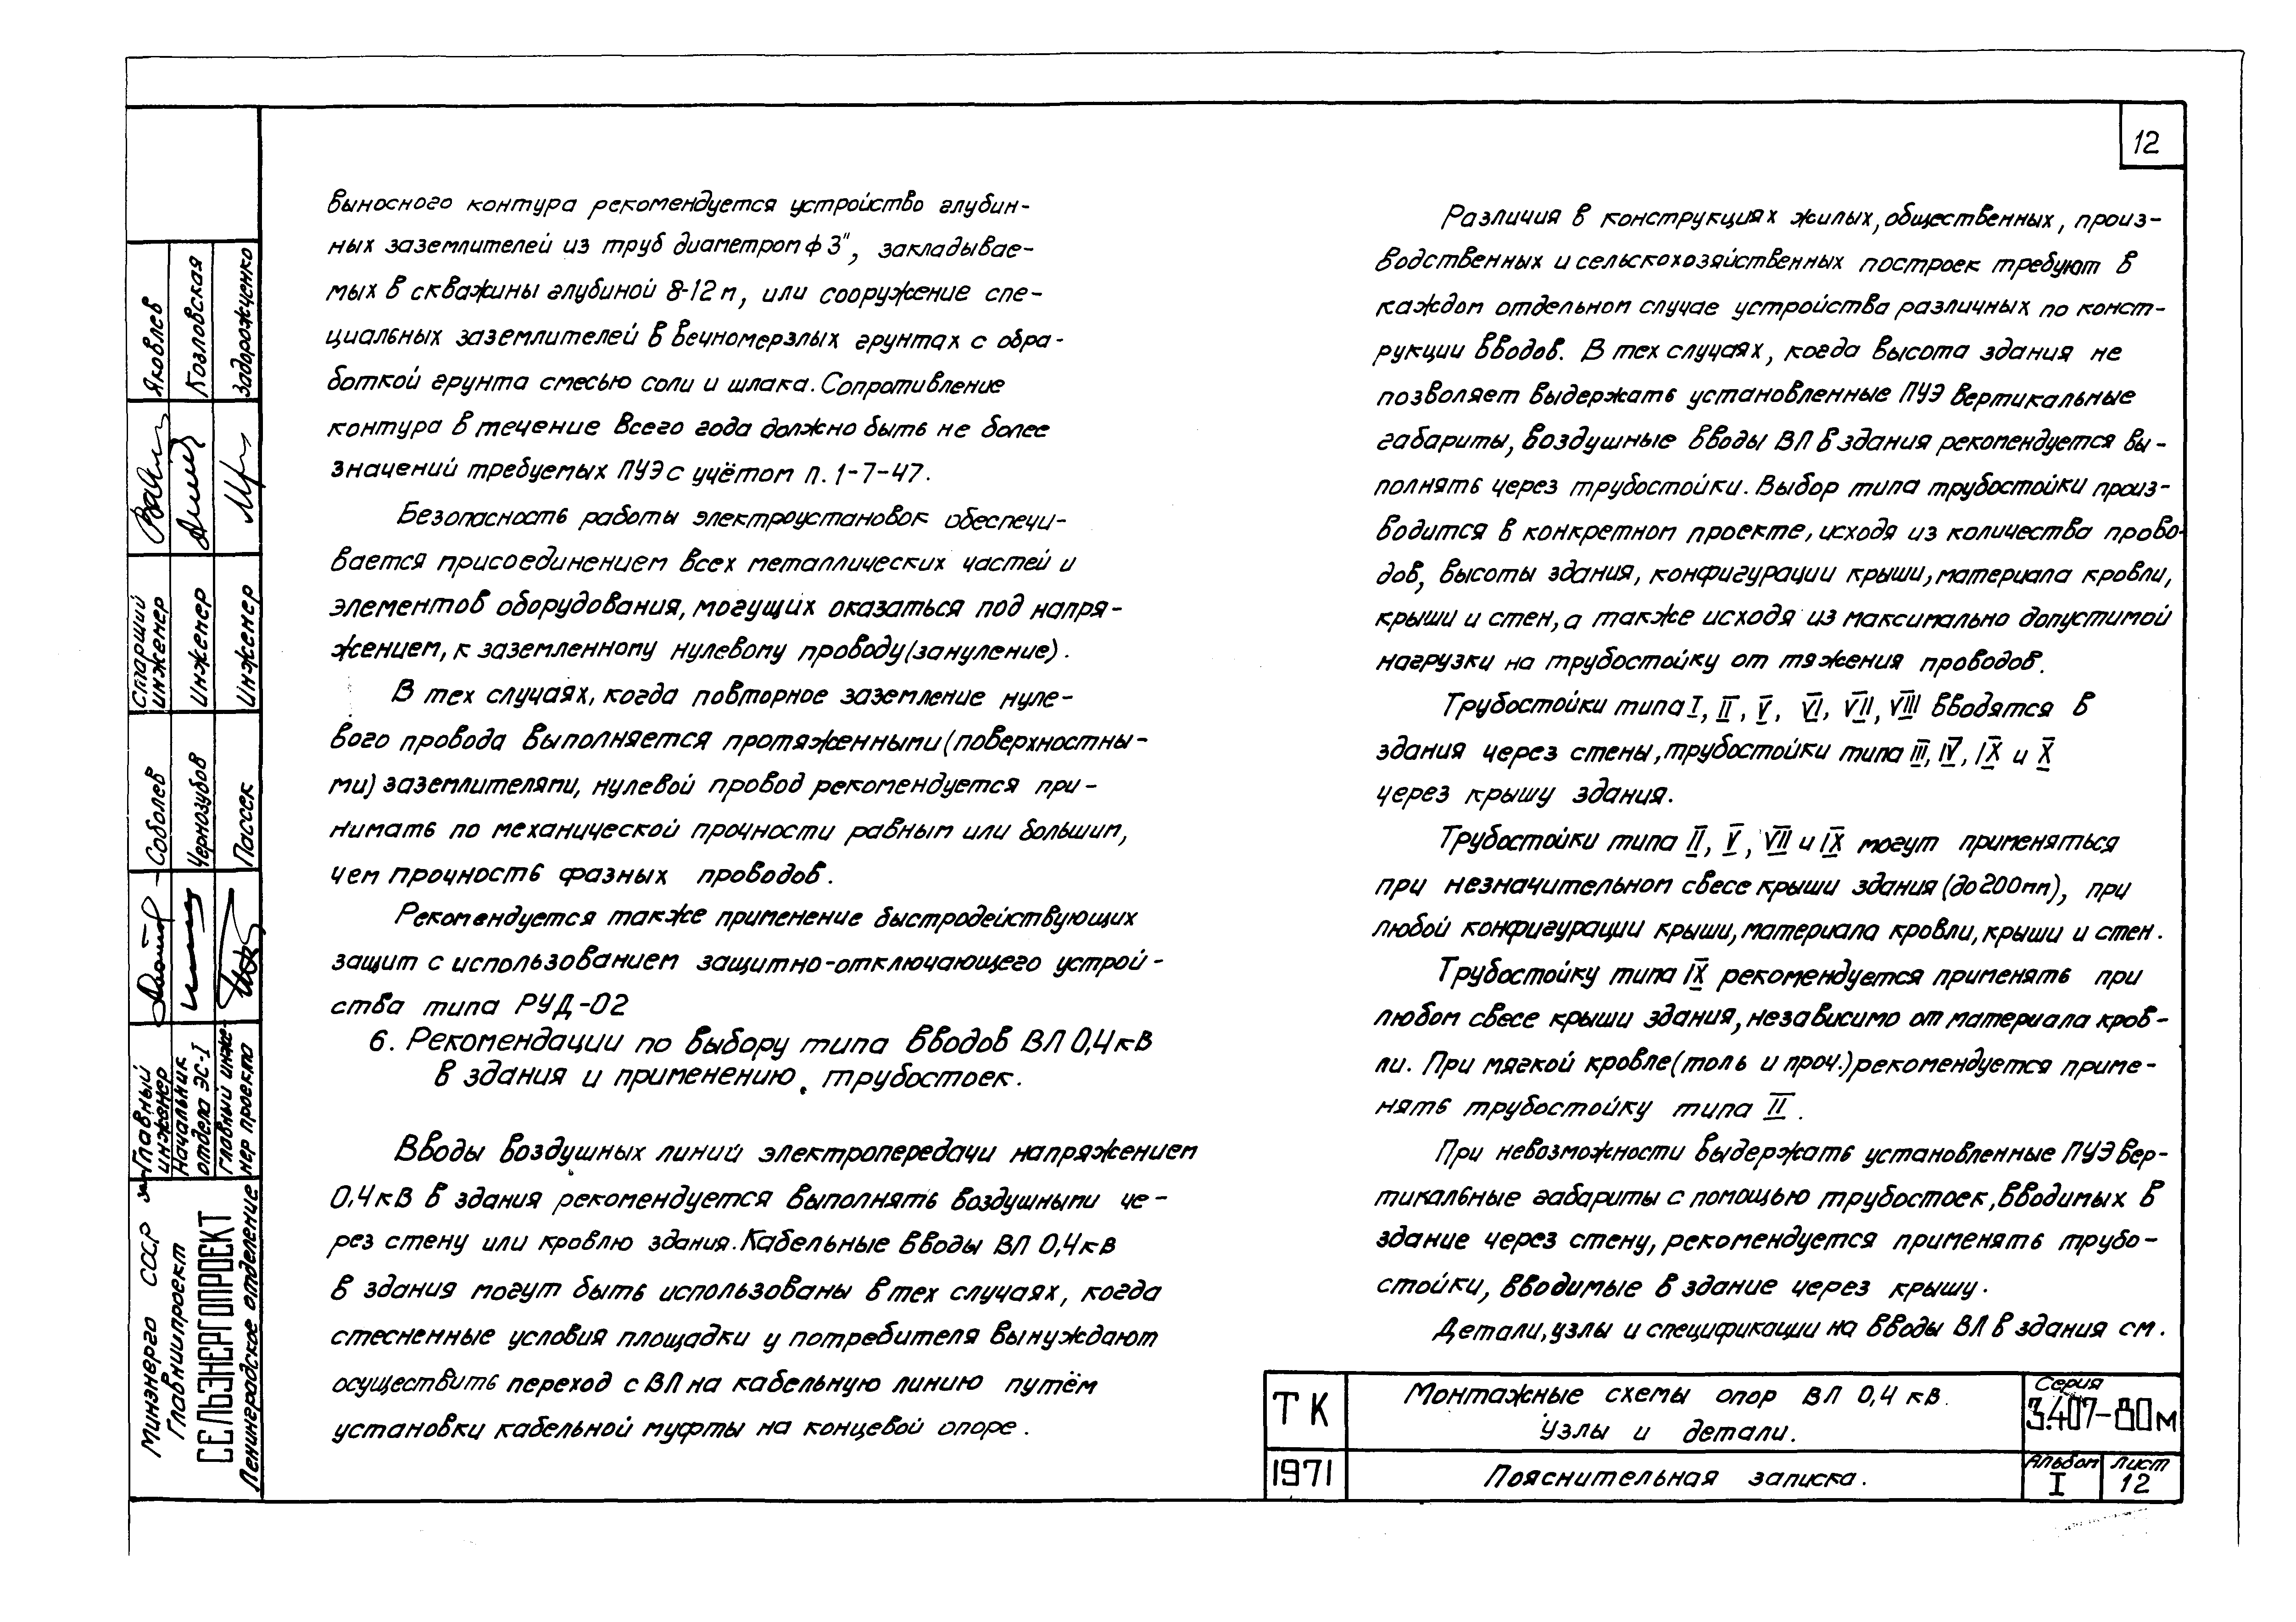 12
выносного контура рекомендуется устройство глубин-
ных заземлителей из труб диаметром ф 3", закладывае-
мых в скважины глубиной 8-12 м, или сооружение спе-
циальных заземлителей в вечномерзлых грунтах с обра-
боткой грунта смесью соли и шлака. Сопротивление
контура в течение всего года должно быть не более
значений требуемых ПУЭ с учётом п. 1-7-47.
Безопасность работы электроустановок обеспечи-
вается присоединением всех металлических частей и
элементов оборудования, могущих оказаться под напря-
жением, к заземленному нулевому проводу (зануление).
В тех случаях, когда повторное заземление нуле-
вого провода выполняется протяженными (поверхностны-
ми) заземлителями, нулевой провод рекомендуется при-
нимать по механической прочности равным или большим,
чем прочность фазных проводов.
Рекомендуется также применение быстродействующих
защит с использованием защитно-отключающего устрой-
ства типа РУД-02
6. Рекомендации по выбору типа вводов ВЛ 0,4 кВ
в здания и применению трубостоек.
Вводы воздушных линий электропередачи напряжением
0,4 кВ в здания рекомендуется выполнять воздушными че-
рез стену или кровлю здания. Кабельные вводы ВЛ 0,4 кВ
в здания могут быть использованы в тех случаях, когда
стесненные условия площадки у потребителя вынуждают
осуществить переход с ВЛ на кабельную линию путём
установки кабельной муфты на концевой опоре.
Различия в конструкциях жилых, общественных, произ-
водственных и сельскохозяйственных построек требуют в
каждом отдельном случае устройства различных по конст-
рукции вводов. В тех случаях, когда высота здания не
позволяет выдержать установленные ПУЭ вертикальные
габариты, воздушные вводы ВЛ в здания рекомендуется вы-
полнять через трубостойки. Выбор типа трубостойки произ-
водится в конкретном проекте, исходя из количества прово-
дов, высоты здания, конфигурации крыши, материала кровли,
крыши и стен, а также исходя из максимально допустимой
нагрузки на трубостойку от тяжения проводов.
Трубостойки типа I, II, V, VI, VII, VIII вводятся в
здания через стены, трубостойки типа III, IV, IX и X
через крышу здания.
Трубостойки типа II, V, VII и IX могут применяться
при незначительном свесе крыши здания (до 200мм), при
любой конфигурации крыши, материала кровли, крыши и стен.
Трубостойку типа IX рекомендуется применять при
любом свесе крыши здания, независимо от материала кров-
ли. При мягкой кровле (толь и проч.) рекомендуется приме-
нять трубостойку типа II.
При невозможности выдержать установленные ПУЭ вер-
тикальные габариты с помощью трубостоек, вводимых в
здание через стену, рекомендуется применять трубо-
стойки, вводимые в здание через крышу.
Детали, узлы и спецификации на вводы ВЛ в здания см.
ТК
1971
Монтажные схемы опор ВЛ 0,4 кВ.
Узлы и детали.
Пояснительная записка.
Серия
3.407-80м
Альбом
I
Лист
12
Яковлев
Козловская
Задорожченко
Старший
инженер
Инженер
Инженер
Соболев
Чернозубов
Поссек
Зам. Главный
инженер
Начальник
отдела ЭС-I
Главный инже-
нер проекта
Минэнерго СССР
Главниипроект
СЕЛЬЭНЕРГОПРОЕКТ
Ленинградское отделение